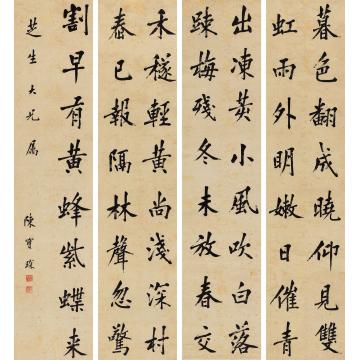 暮色翻成曉仰見雙
虹雨外明嫩日催青
出凍荑小風吹白落
疎梅殘冬未放春交
禾穟輕黃尚淺深村
舂已報隔林聲忽驚
割早有黃蜂紫蝶来
芝生大兄屬 陳寶琛